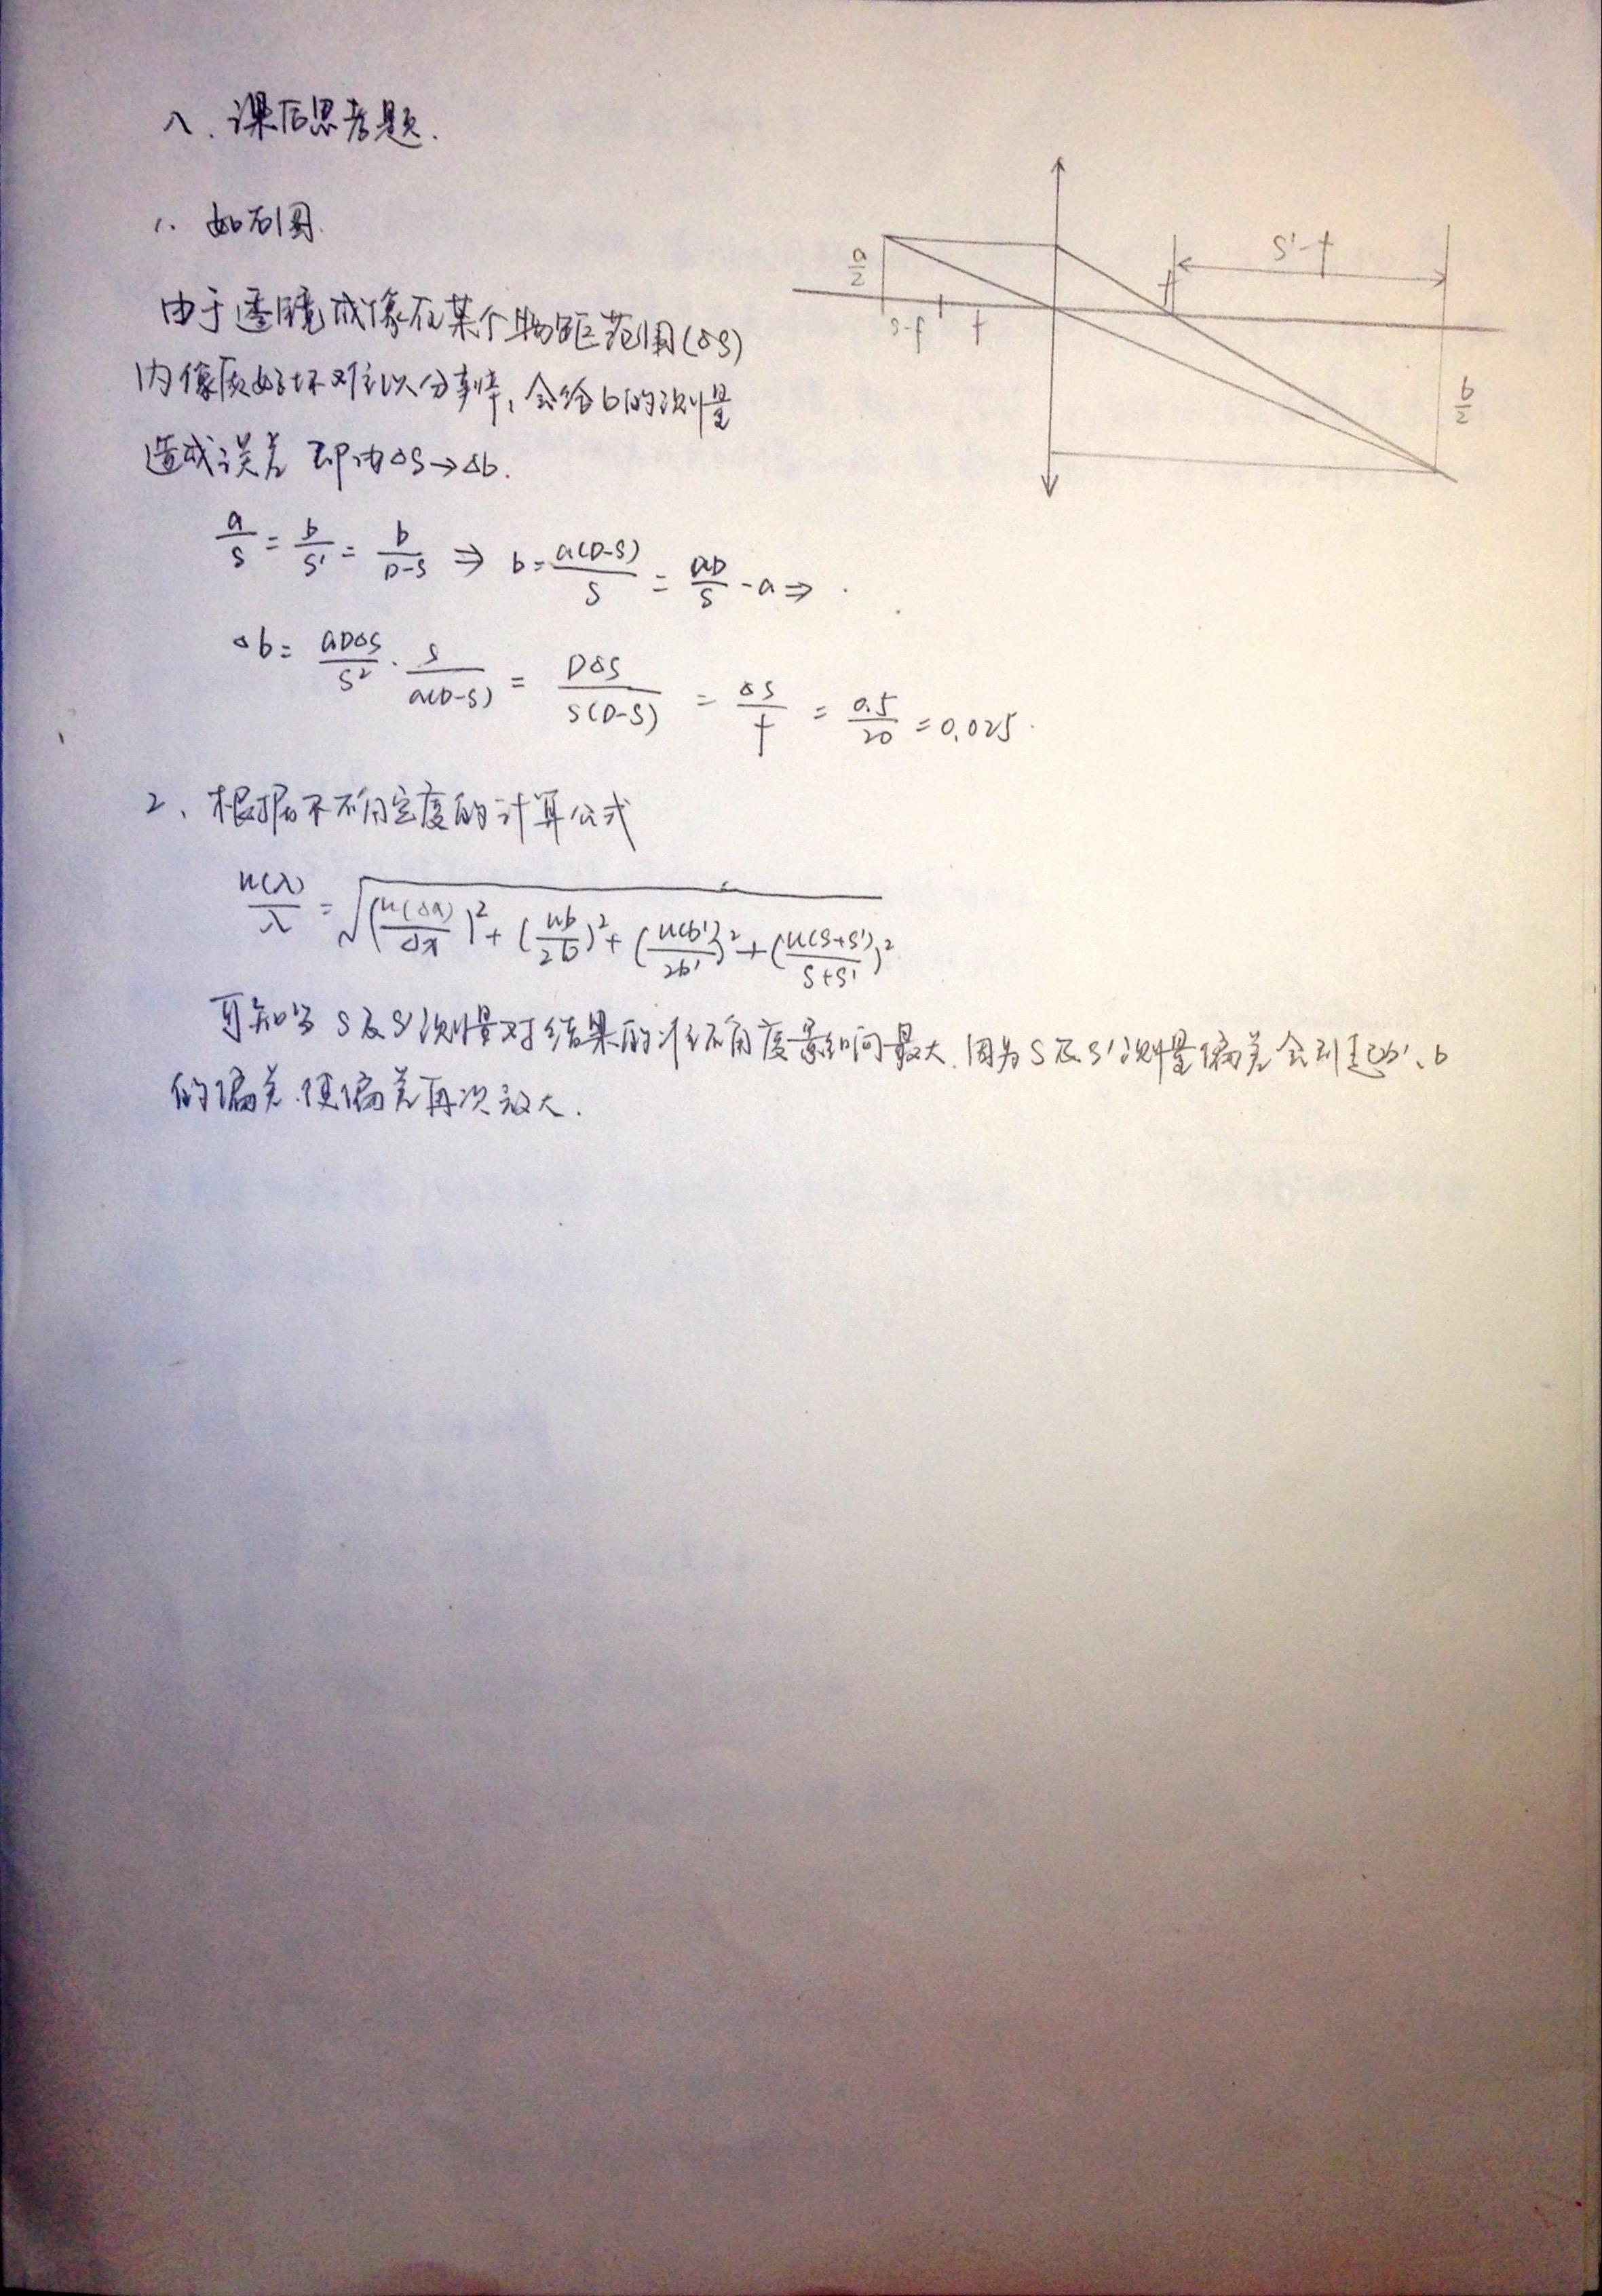 八、课后思考题.
1. 如右图.
由于透镜成像在某个物距范围(ΔS)
内像质好坏难以分辨,会给b的测量
造成误差 即由ΔS→Δb.
a/S = b/S' = b/(D-S) ⇒ b = a(D-S)/S = aD/S - a ⇒
Δb = aDΔS/S² · S/(a(D-S)) = DΔS/(S(D-S)) = ΔS/f = 0.5/20 = 0.025.
2、根据不不确定度的计算公式
u(λ)/λ = √((u(Δx)/Δx)² + (ub/2b)² + (u(b')/2b')² + (u(S+S')/(S+S'))²)
可知 S及S'测量对结果的准确度影响最大.因为S及S'测量偏差会引起b'、b
的偏差.使偏差再次放大.
a/2
S-f
f
f
S'-f
b/2